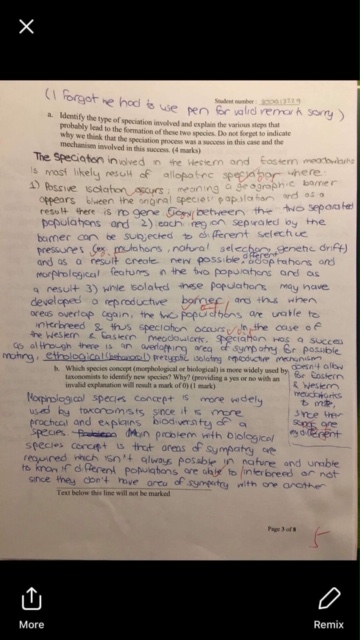 (I forgot we had to use pen for valid remark sorry)
Student number:
a. Identify the type of speciation involved and explain the various steps that
probably lead to the formation of these two species. Do not forget to indicate
why we think that the speciation process was a success in this case and the
mechanism involved in this success. (4 marks)
The speciation involved in the Western and Eastern meadowlarks
is most likely result of allopatric speciation where:
1) Passive isolation occurs; meaning a geographic barrier
appears between the original species' population and as a
result there is no gene flow between the two separated
populations and 2) each region separated by the
barrier can be subjected to different selective
pressures (eg. mutations, natural selection, genetic drift)
and as a result create new possible different adaptations and
morphological features in the two populations and as
a result 3) while isolated these populations may have
developed a reproductive barrier and thus when
areas overlap again, the two populations are unable to
interbreed & thus speciation occurs. In the case of
the Western & Eastern meadowlarks, speciation was a success
as although there is an overlapping area of sympatry for possible
mating, ethological (behavioral) prezygotic isolating reproductive mechanism
doesn't allow
for Eastern
& Western
meadowlarks
to mate,
since their
songs are
different
b. Which species concept (morphological or biological) is more widely used by
taxonomists to identify new species? Why? (providing a yes or no with an
invalid explanation will result a mark of 0) (1 mark)
Morphological species concept is more widely
used by taxonomists since it is more
practical and explains biodiversity of a
species. Main problem with biological
species concept is that areas of sympatry are
required which isn't always possible in nature and unable
to know if different populations are able to interbreed or not
since they don't have area of sympatry with one another
Text below this line will not be marked
Page 3 of 8
5
More
Remix